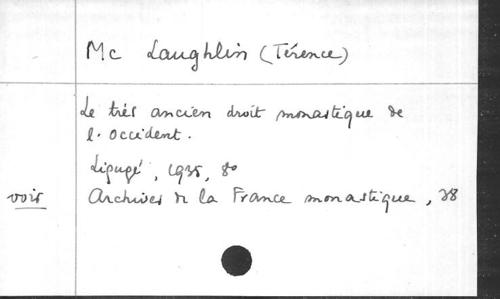 Mc Laughlin (Térence)
Le très ancien droit monastique de
l'occident.
Ligugé, 1935, 8o
voir Archives de la France monastique, 38